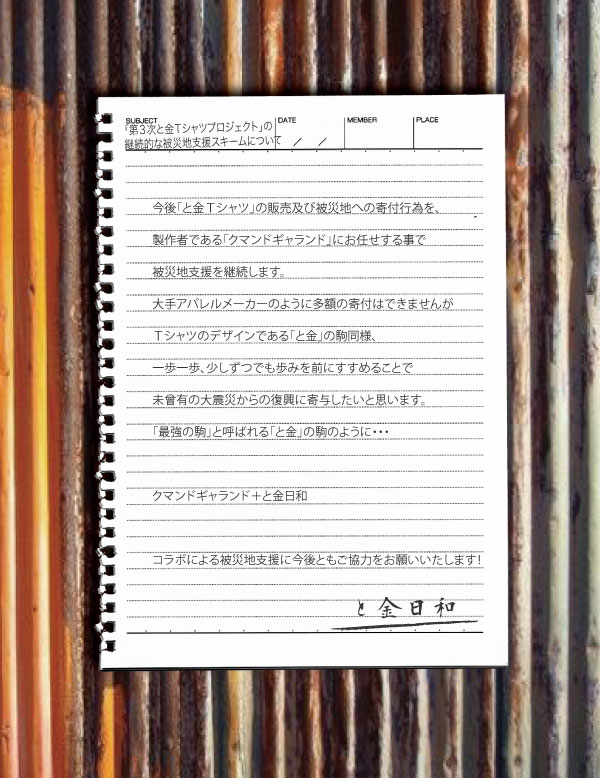 SUBJECT DATE MEMBER PLACE
「第3次と金Tシャツプロジェクト」の
継続的な被災地支援スキームについて / /
今後「と金Tシャツ」の販売及び被災地への寄付行為を、
製作者である「クマンドギャランド」にお任せする事で
被災地支援を継続します。
大手アパレルメーカーのように多額の寄付はできませんが
Tシャツのデザインである「と金」の駒同様、
一歩一歩、少しずつでも歩みを前にすすめることで
未曾有の大震災からの復興に寄与したいと思います。
「最強の駒」と呼ばれる「と金」の駒のように・・・
クマンドギャランド＋と金日和
コラボによる被災地支援に今後ともご協力をお願いいたします！
と金日和